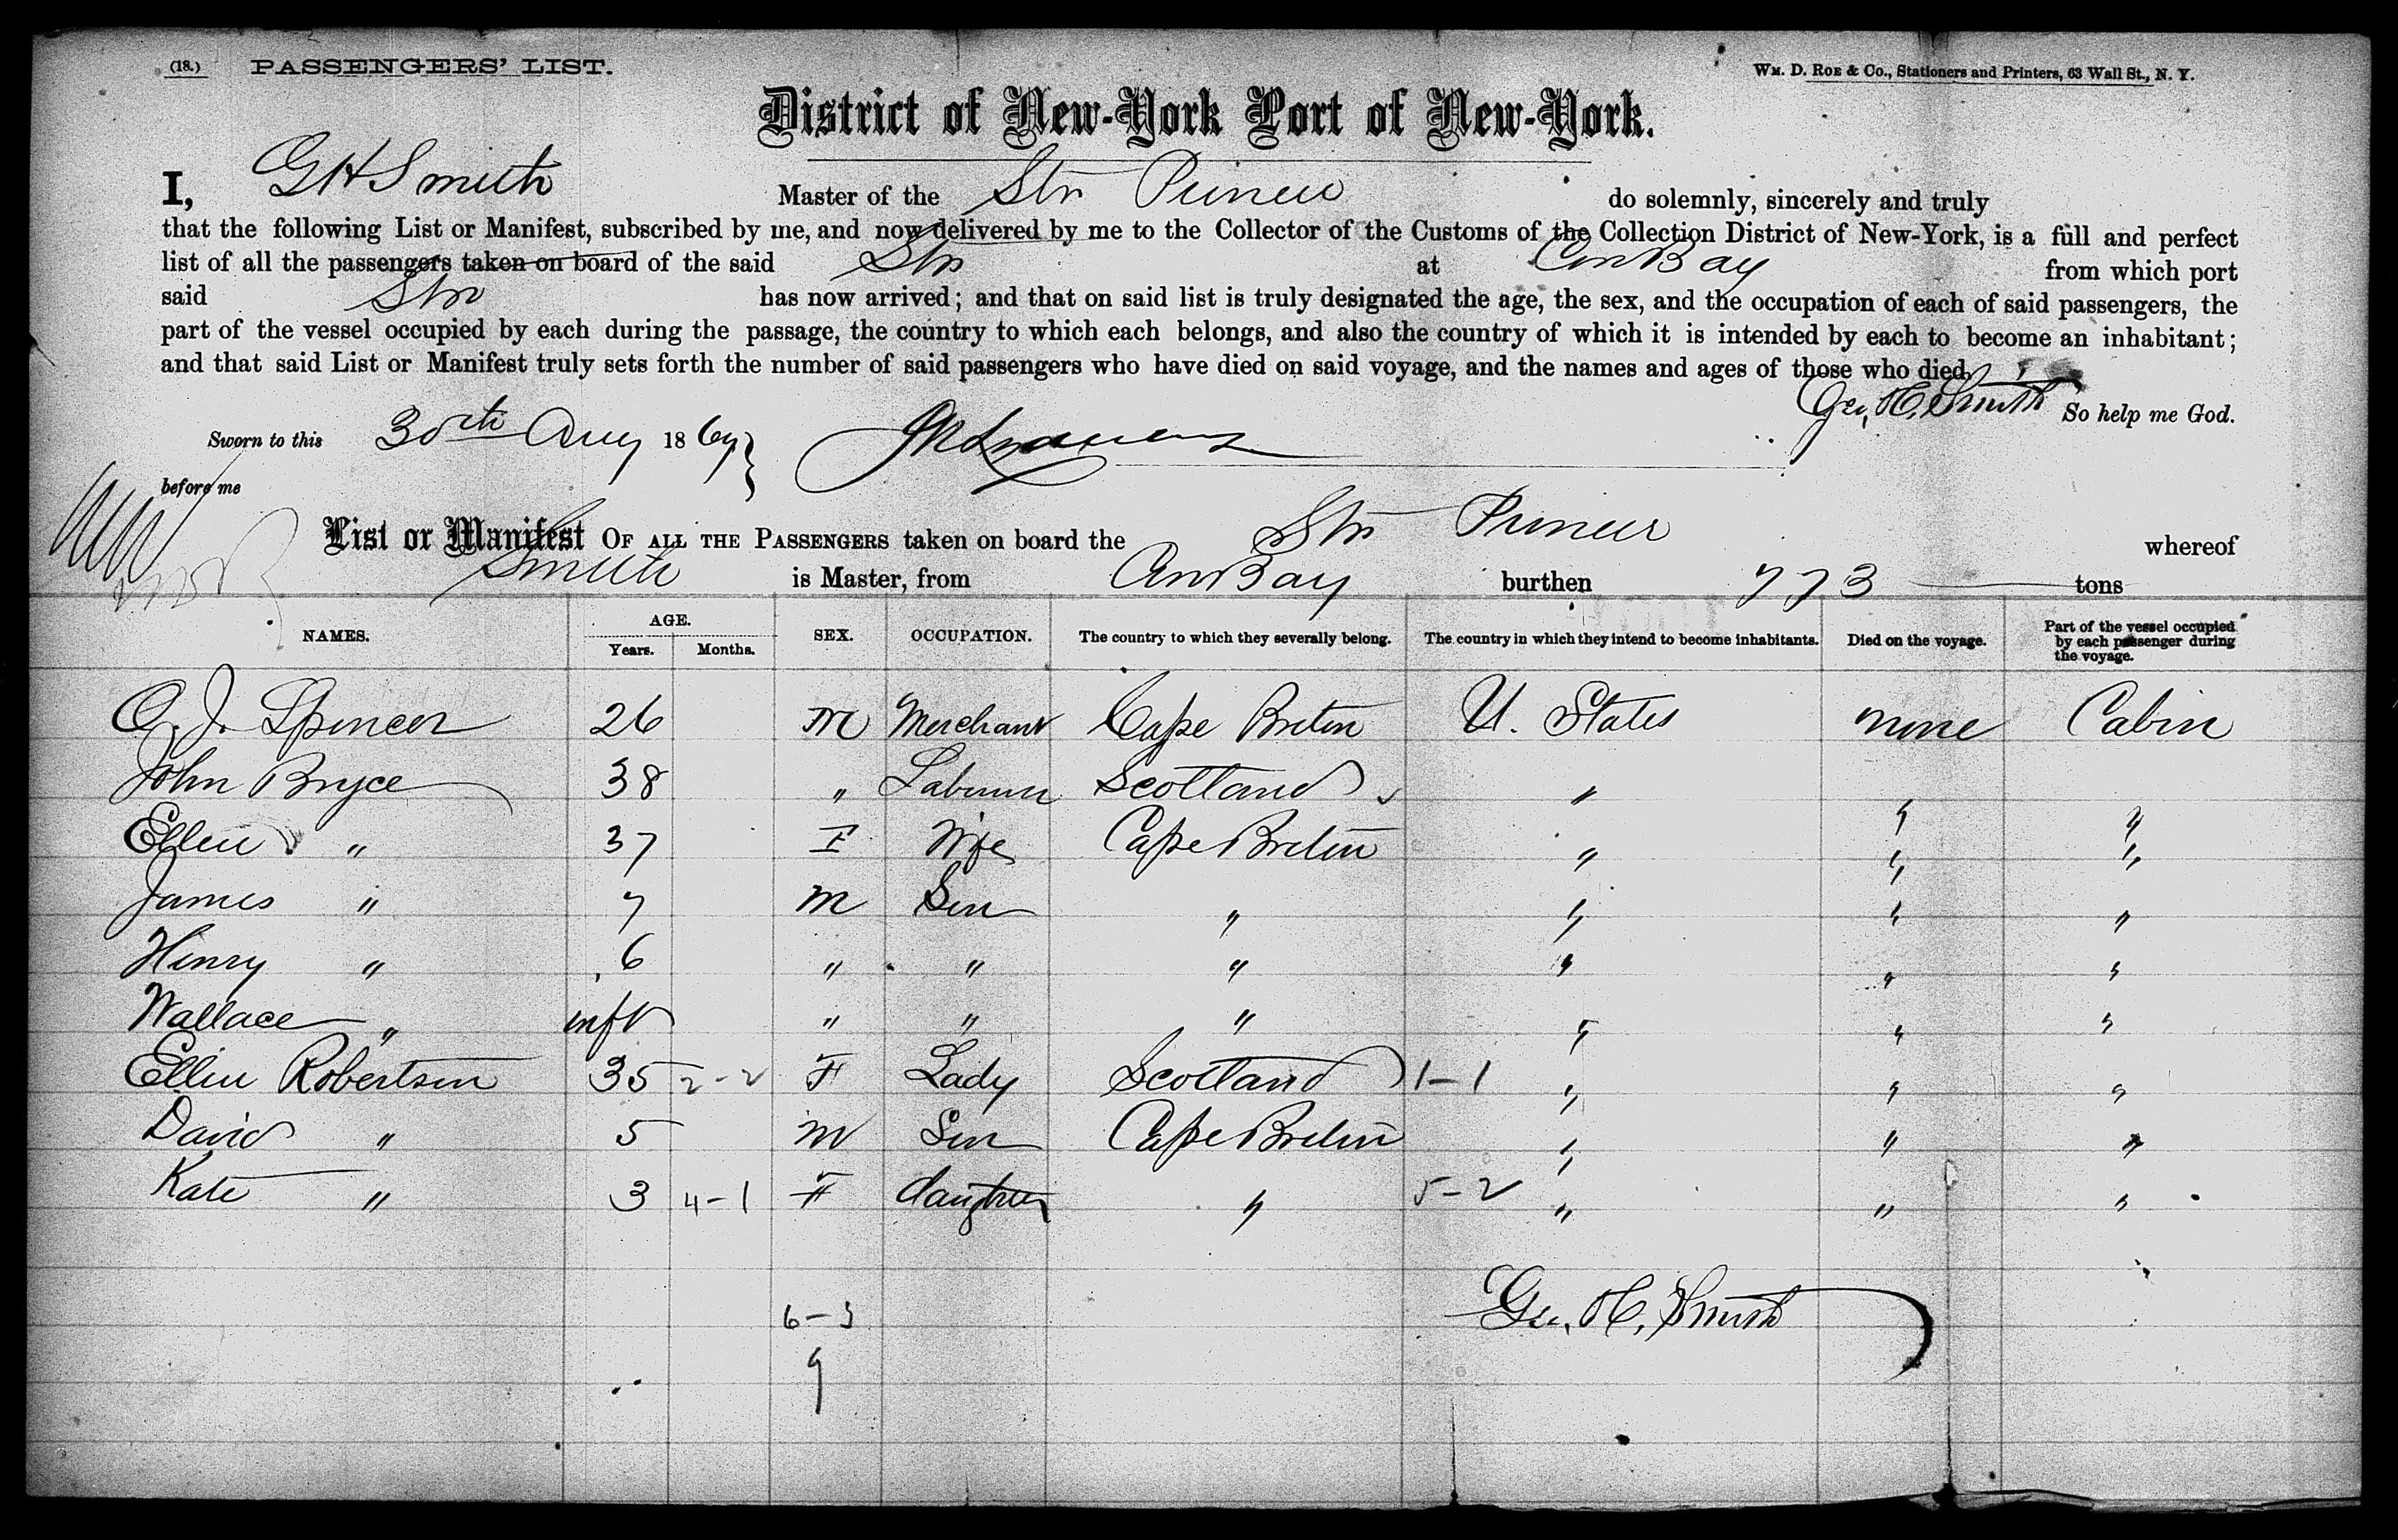 (18.) PASSENGERS' LIST. WM. D. ROE & Co., Stationers and Printers, 63 Wall St., N. Y.
District of New-York Port of New-York.
I, G H Smith Master of the Str do solemnly, sincerely and truly
that the following List or Manifest, subscribed by me, and now delivered by me to the Collector of the Customs of the Collection District of New-York, is a full and perfect
list of all the passengers taken on board of the said Str at Cow Bay from which port
said Str has now arrived; and that on said list is truly designated the age, the sex, and the occupation of each of said passengers, the
part of the vessel occupied by each during the passage, the country to which each belongs, and also the country of which it is intended by each to become an inhabitant;
and that said List or Manifest truly sets forth the number of said passengers who have died on said voyage, and the names and ages of those who died.
Geo. H. Smith So help me God.
Sworn to this 30th Aug 1869
before me
List or Manifest OF ALL THE PASSENGERS taken on board the Str whereof
Smith is Master, from Cow Bay burthen 773 tons
NAMES. AGE. Years. Months. SEX. OCCUPATION. The country to which they severally belong. The country in which they intend to become inhabitants. Died on the voyage. Part of the vessel occupied by each passenger during the voyage.
O. J. Spencer 26 M Merchant Cape Breton U. States none Cabin
John Bryce 38 " Labourer Scotland " " "
Ellen " 37 F Wife Cape Breton " " "
James " 7 M Son " " " "
Henry " 6 " " " " " "
Wallace " inft " " " " " "
Ellen Robertson 35 2-2 F Lady Scotland 1-1 " " "
David " 5 M Son Cape Breton " " "
Kate " 3 4-1 F daughter " 5-2 " " "
Geo. H. Smith
6-3
9